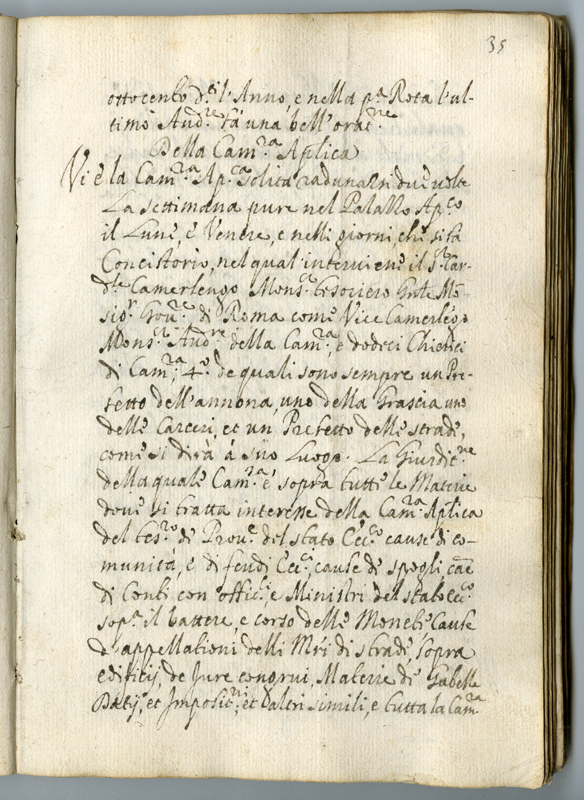 35
ottocento d.ti l'Anno, e nella p.a Rota l'ul-
timo Aud.re fà una bell'orat.ne
Della Cam.ra Aplica
Vi è la Cam.ra Ap.ca solita radunarsi due volte
La settimana pure nel Palazzo Ap.co
il Lune, e Venere, e nelli giorni, che si fà
Concistorio, nel qual'interviene il S.r Car-
d.le Camerlengo Mons.r tesoriero Gn̅le Mō
sig.r Gov.re di Roma come Vice Camerlēgo
Mons.r Aud.re della Cam.ra, e dodeci Chierici
di Cam.ra, 4.o de quali sono sempre un Pre-
fetto dell'annona, uno della Grascia uno
delle Carceri, et un Prefetto delle strade,
come si dirà à suo Luogo. La Giurdit.ne
della quale Cam.ra è sopra tutte le Materie
dove si tratta interesse della Cam.ra Aplica
del tes.ro di Prov.e del stato Ecc.co cause di co-
munità, e di feudi Ecc.ci, cause di spogli cāe
di Conti con offic.li e Ministri del stato Ecc.co
sop.a il battere, e corso delle Monete Cause
d'appellationi delli Mri di strade, sopra
edificij, de Jure congrui, Materie di Gabelle
Datij, et Imposit.ni, et altri simili, e tutta la Cam.ra